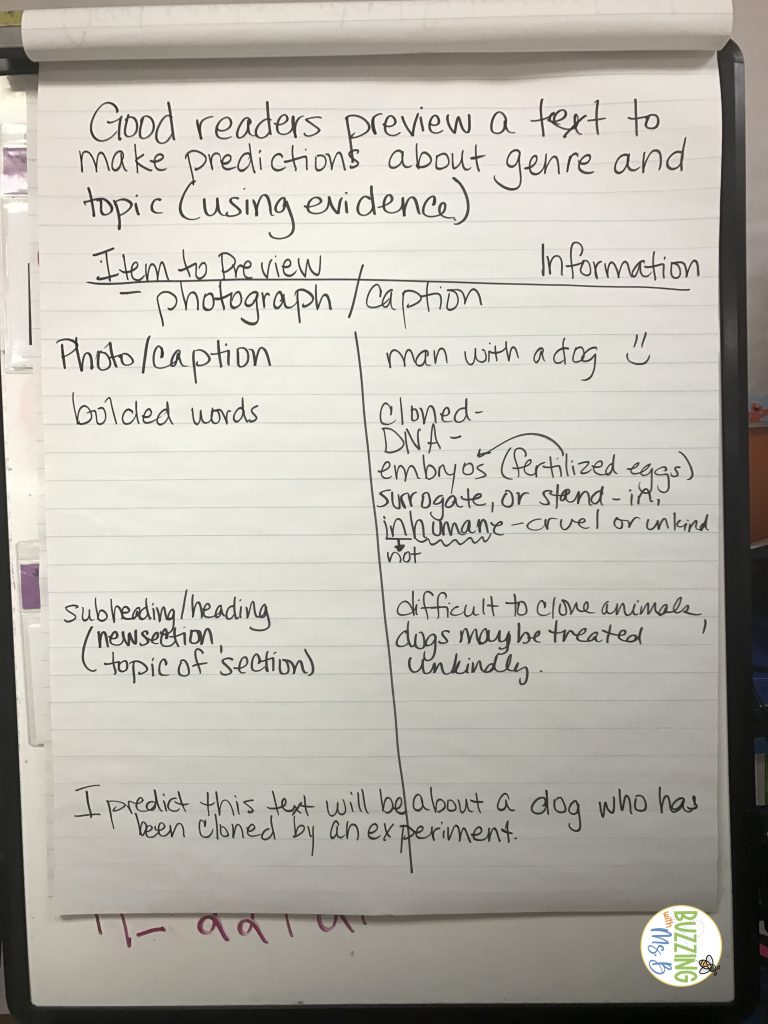 Good readers preview a text to
make predictions about genre and
topic (using evidence)
Item to Preview Information
- photograph / caption
Photo/caption man with a dog
bolded words cloned-
DNA-
embryos (fertilized eggs)
surrogate, or stand-in,
inhumane - cruel or unkind
not
subheading/heading difficult to clone animals,
(new section, dogs may be treated
(topic of section) unkindly.
I predict this text will be about a dog who has
been cloned by an experiment.
BUZZING
with
Ms. B